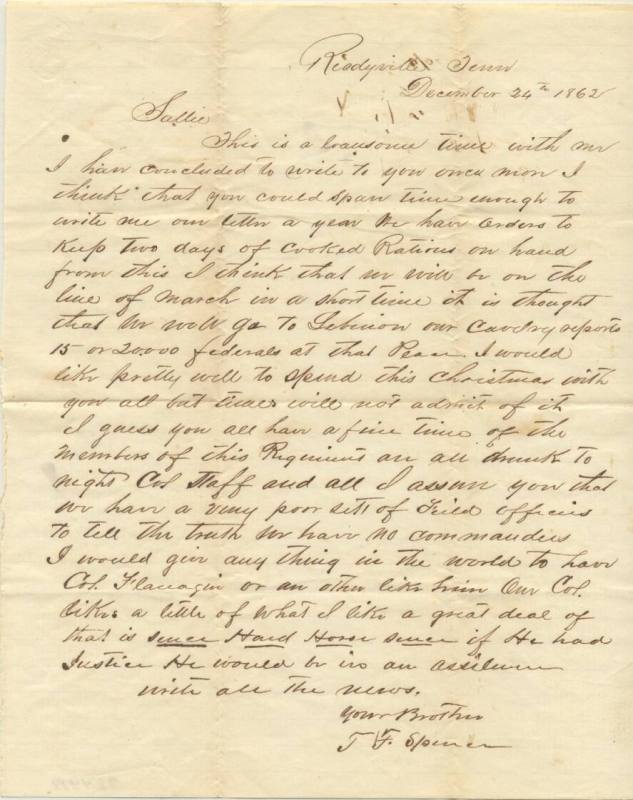 Readyville Tenn
December 24th 1862
Sallie
This is a lonesome time with me
I have concluded to write to you once more I
think that you could spare time enough to
write me one letter a year We have Orders to
Keep two days of Cooked Rations on hand
from this I think that we will be on the
line of march in a short time it is thought
that we will go to Lebinon our Cavelry reports
15 or 20.000 federals at that Peace I would
like pretty well to spend this Christmas with
you all but times will not admit of it
I guess you all have a fine time of the
members of this Regiment are all drunk to
night Col Staff and all I assure you that
we have a very poor sett of Feild officers
to tell the truth we have no commanders
I would give any thing in the world to have
Col. Flanagin or an other like him Our Col.
likes a little of what I like a great deal of
that is sence Hard Horse sence if He had
Justice He would be in an assilum
write all the news.
Your Brother
T F. Spence